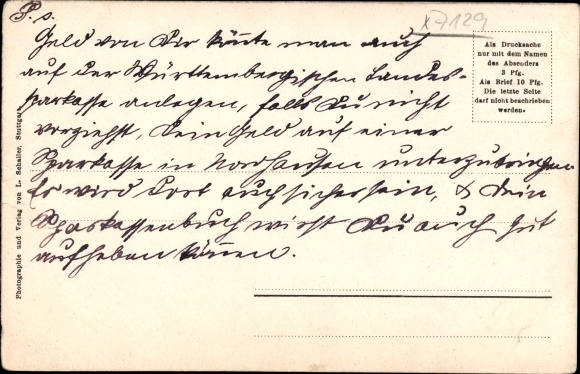 P. s.
x7129
Geld von Dir könnte man auch
auf der Württembergischen Landes-
sparkasse anlegen, falls Du nicht
vorziehst, Dein Geld auf einer
Sparkasse in Nordhausen unterzubringen
Es wird dort auch sicher sein, & Dein
Sparkassenbuch wirst Du auch gut
aufheben können.
Als Drucksache
nur mit dem Namen
des Absenders
3 Pfg.
Als Brief 10 Pfg.
Die letzte Seite
darf nicht beschrieben
werden.
Photographie und Verlag von L. Schaller, Stuttgart